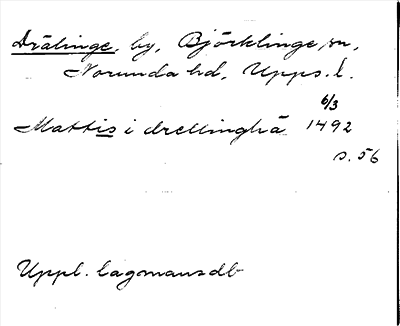 Drälinge, by, Björklinge sn,
Norunda hd, Upps. l.
6/3
Mattis i drellinghä 1492
s. 56
Uppl. lagmansdb